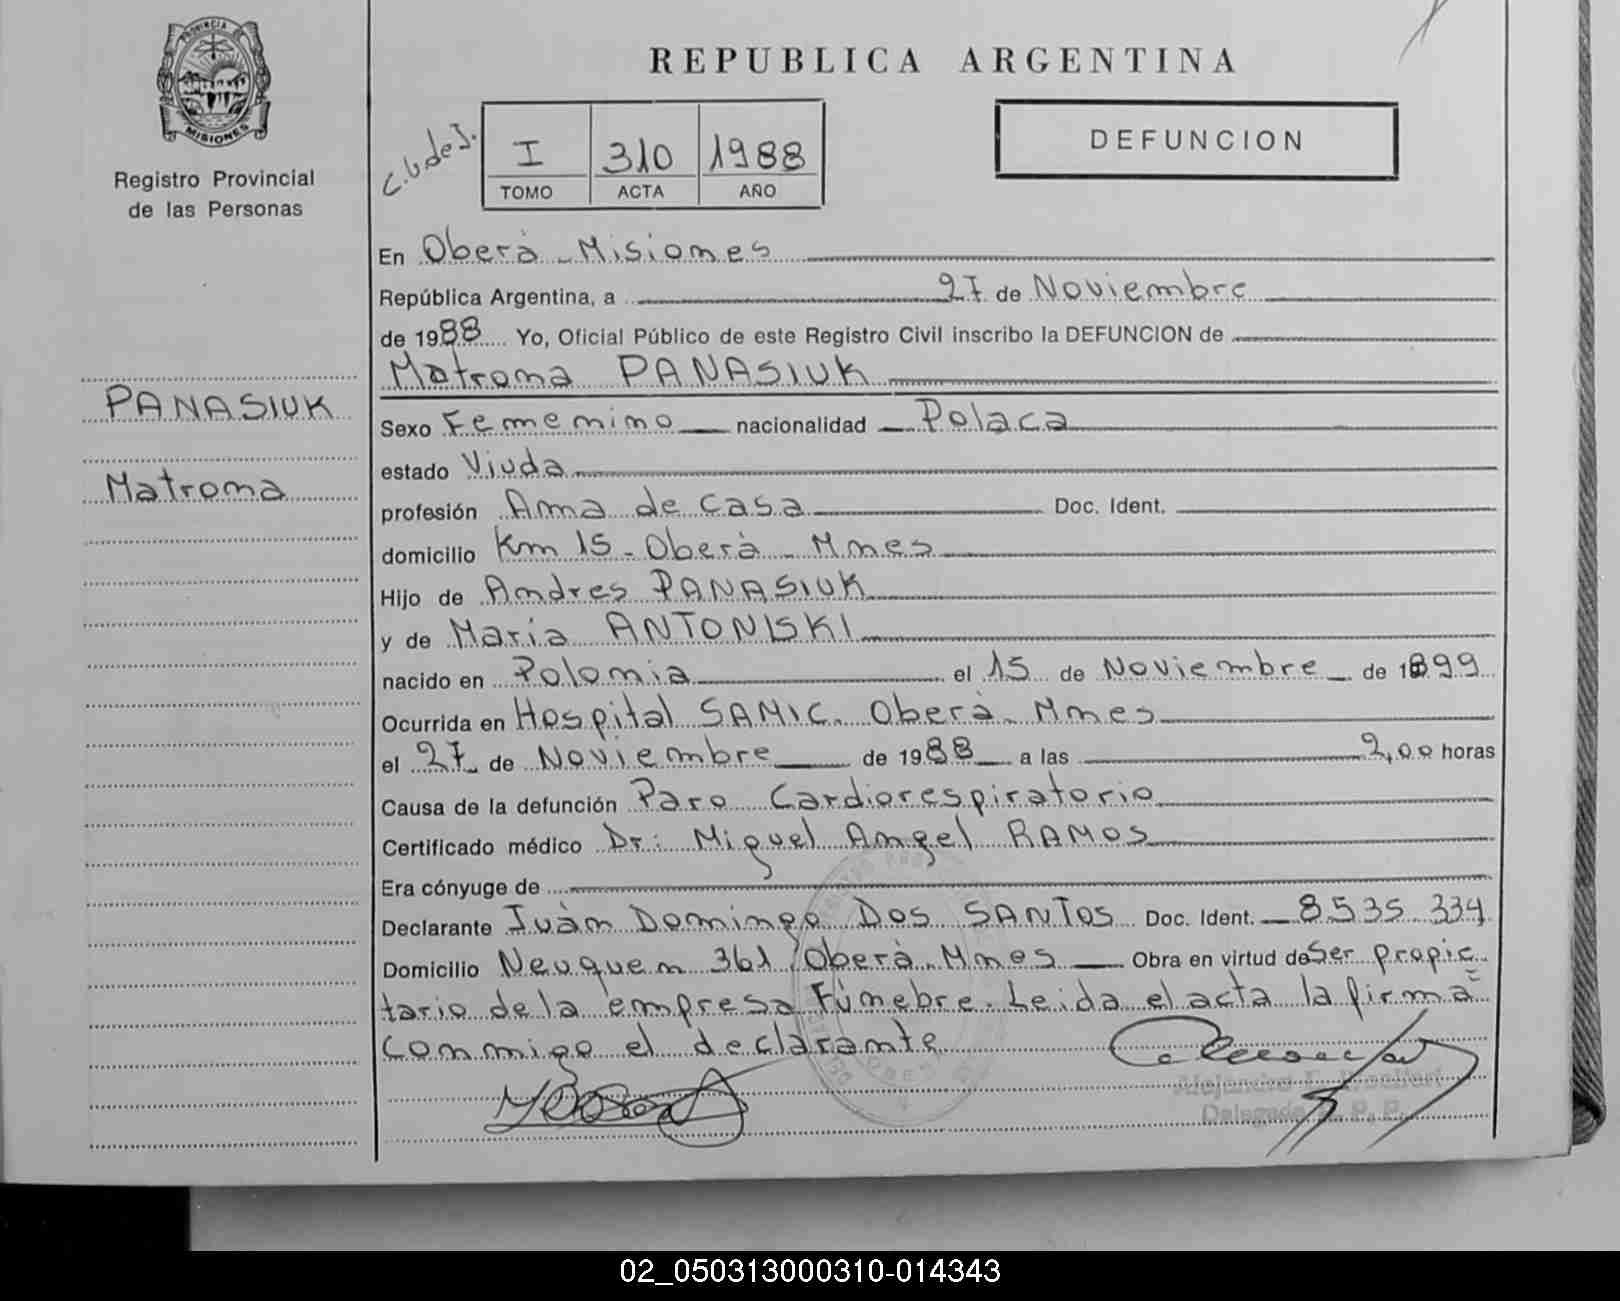 PROVINCIA DE
MISIONES
Registro Provincial
de las Personas
PANASIUK
Matrona
REPUBLICA ARGENTINA
DEFUNCION
C.G.deI.
I 310 1988
TOMO ACTA AÑO
En Oberà - Misiones
República Argentina, a 27 de Noviembre
de 1988 Yo, Oficial Público de este Registro Civil inscribo la DEFUNCION de
Matrona PANASIUK
Sexo Femenino nacionalidad Polaca
estado Viuda
profesión Ama de casa Doc. Ident.
domicilio Km 15 - Oberà - Mnes
Hijo de Andres PANASIUK
y de Maria ANTONISKI
nacido en Polonia el 15 de Noviembre de 1899
Ocurrida en Hospital SAMIC. Oberà. Mnes
el 27 de Noviembre de 1988 a las 2,00 horas
Causa de la defunción Paro Cardiorespiratorio
Certificado médico Dr: Miguel Angel RAMOS
Era cónyuge de
Declarante Iuàn Domingo DOS SANTOS Doc. Ident. 8535 334
Domicilio Neuquen 361 Oberà. Mnes Obra en virtud de Ser propie
tario de la empresa Fùnebre. Leida el acta la firma
conmigo el declarante
Delegado R. P. P.
02_050313000310-014343